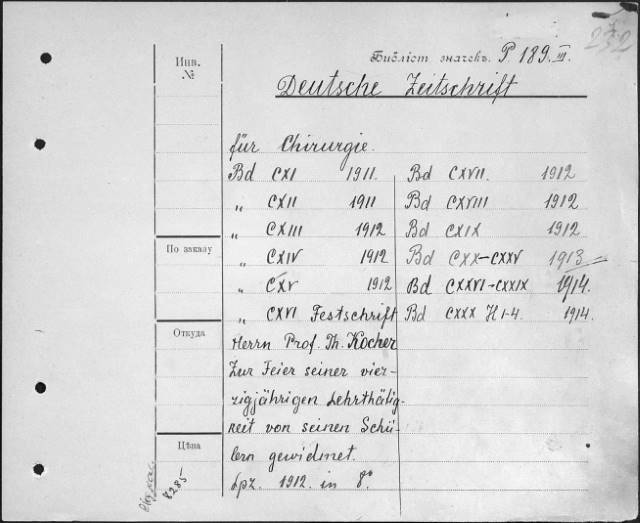 Инв.
№
Библіот. значекъ. P. 189. III.
Deutsche Zeitschrift
für Chirurgie.
Bd CXI 1911.
„ CXII 1911
„ CXIII 1912
„ CXIV 1912
„ CXV 1912
„ CXVI Festschrift
Herrn Prof. Th. Kocher
Zur Feier seiner vier-
zigjährigen Lehrthätig-
keit von seinen Schü-
lern gewidmet.
Lpz. 1912. in 8°
Bd CXVII. 1912
Bd CXVIII 1912
Bd CXIX 1912
Bd CXX–CXXV 1913
Bd CXXVI–CXXIX 1914.
Bd CXXX H 1-4. 1914.
По заказу
Откуда
Цѣна
8285